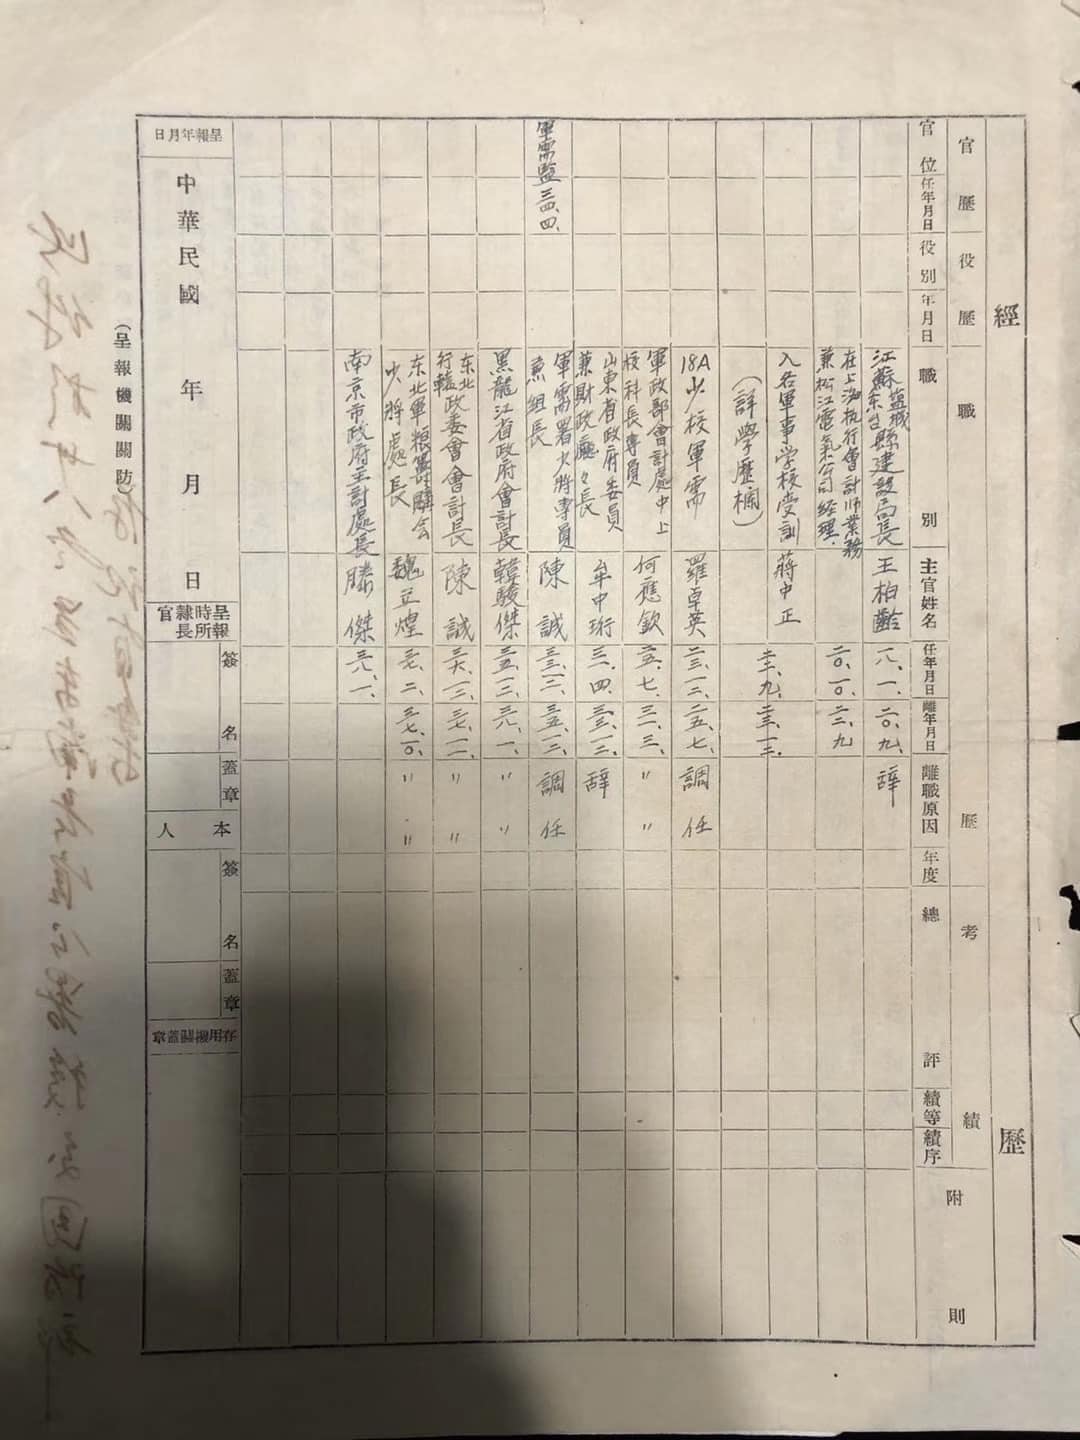 經歷
官歷
役歷
職歷
考績
附則
官位
任年月日
役別
年月日
職別
主官姓名
任年月日
離年月日
離職原因
年度
總評
績等
績序
江蘇鹽城東台縣建設局長 王柏齡 一八、一、 二〇、九、 辞
在上海执行會計师業務
兼松江電氣公司经理、 二〇、一〇、 二二、九
入各軍事学校受訓 蔣中正 二二、九、 二三、一二、
(詳學歷欄)
18A少校軍需 羅卓英 二三、一二、 二五、七、 調任
軍政部會計處中上
校科長專員 何應欽 二五、七、 三一、三、 〃 〃
山東省政府委員
兼財政廳々長 牟中珩 三一、四、 三三、一二、 辞
軍需監 三四、四、
軍需署少將專員
兼組長 陳誠 三三、一二、 三五、一二、 調任
黑龍江省政府會計長 韓駿傑 三五、一二、 三八、一、 〃 〃
东北
行轅政委會會計長 陳誠 三六、一二、 三七、一一、 〃 〃
东北軍粮籌購会
少將處長 魏立煌 三七、二、 三七、一〇、 〃 〃
南京市政府主計處長 滕傑 三八、一、
呈報年月日
中華民國 年 月 日
呈報時所隸官長
簽名
蓋章
本人
簽名
蓋章
存用機關蓋章
(呈報機關關防)